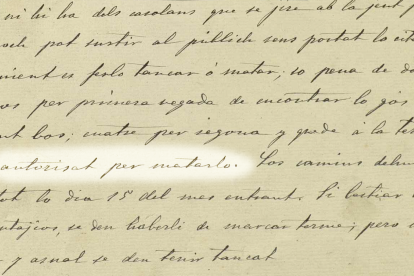 ni hi ha dels casolans que se jire ab la gent p
och pot surtir al públich sens portat lo citat
nient es ferlo tancar ó matar; so pena de do
os per primera vegada de encontrar lo gos
nt bos; cuatre per segona y queda a la te
autorisat per matarlo. Los camins dehu
tot lo dia 15 del mes entrant. Si bestiar
ntajios, se den haberli de marcar terme; pero
y asnal se den tenir tancat